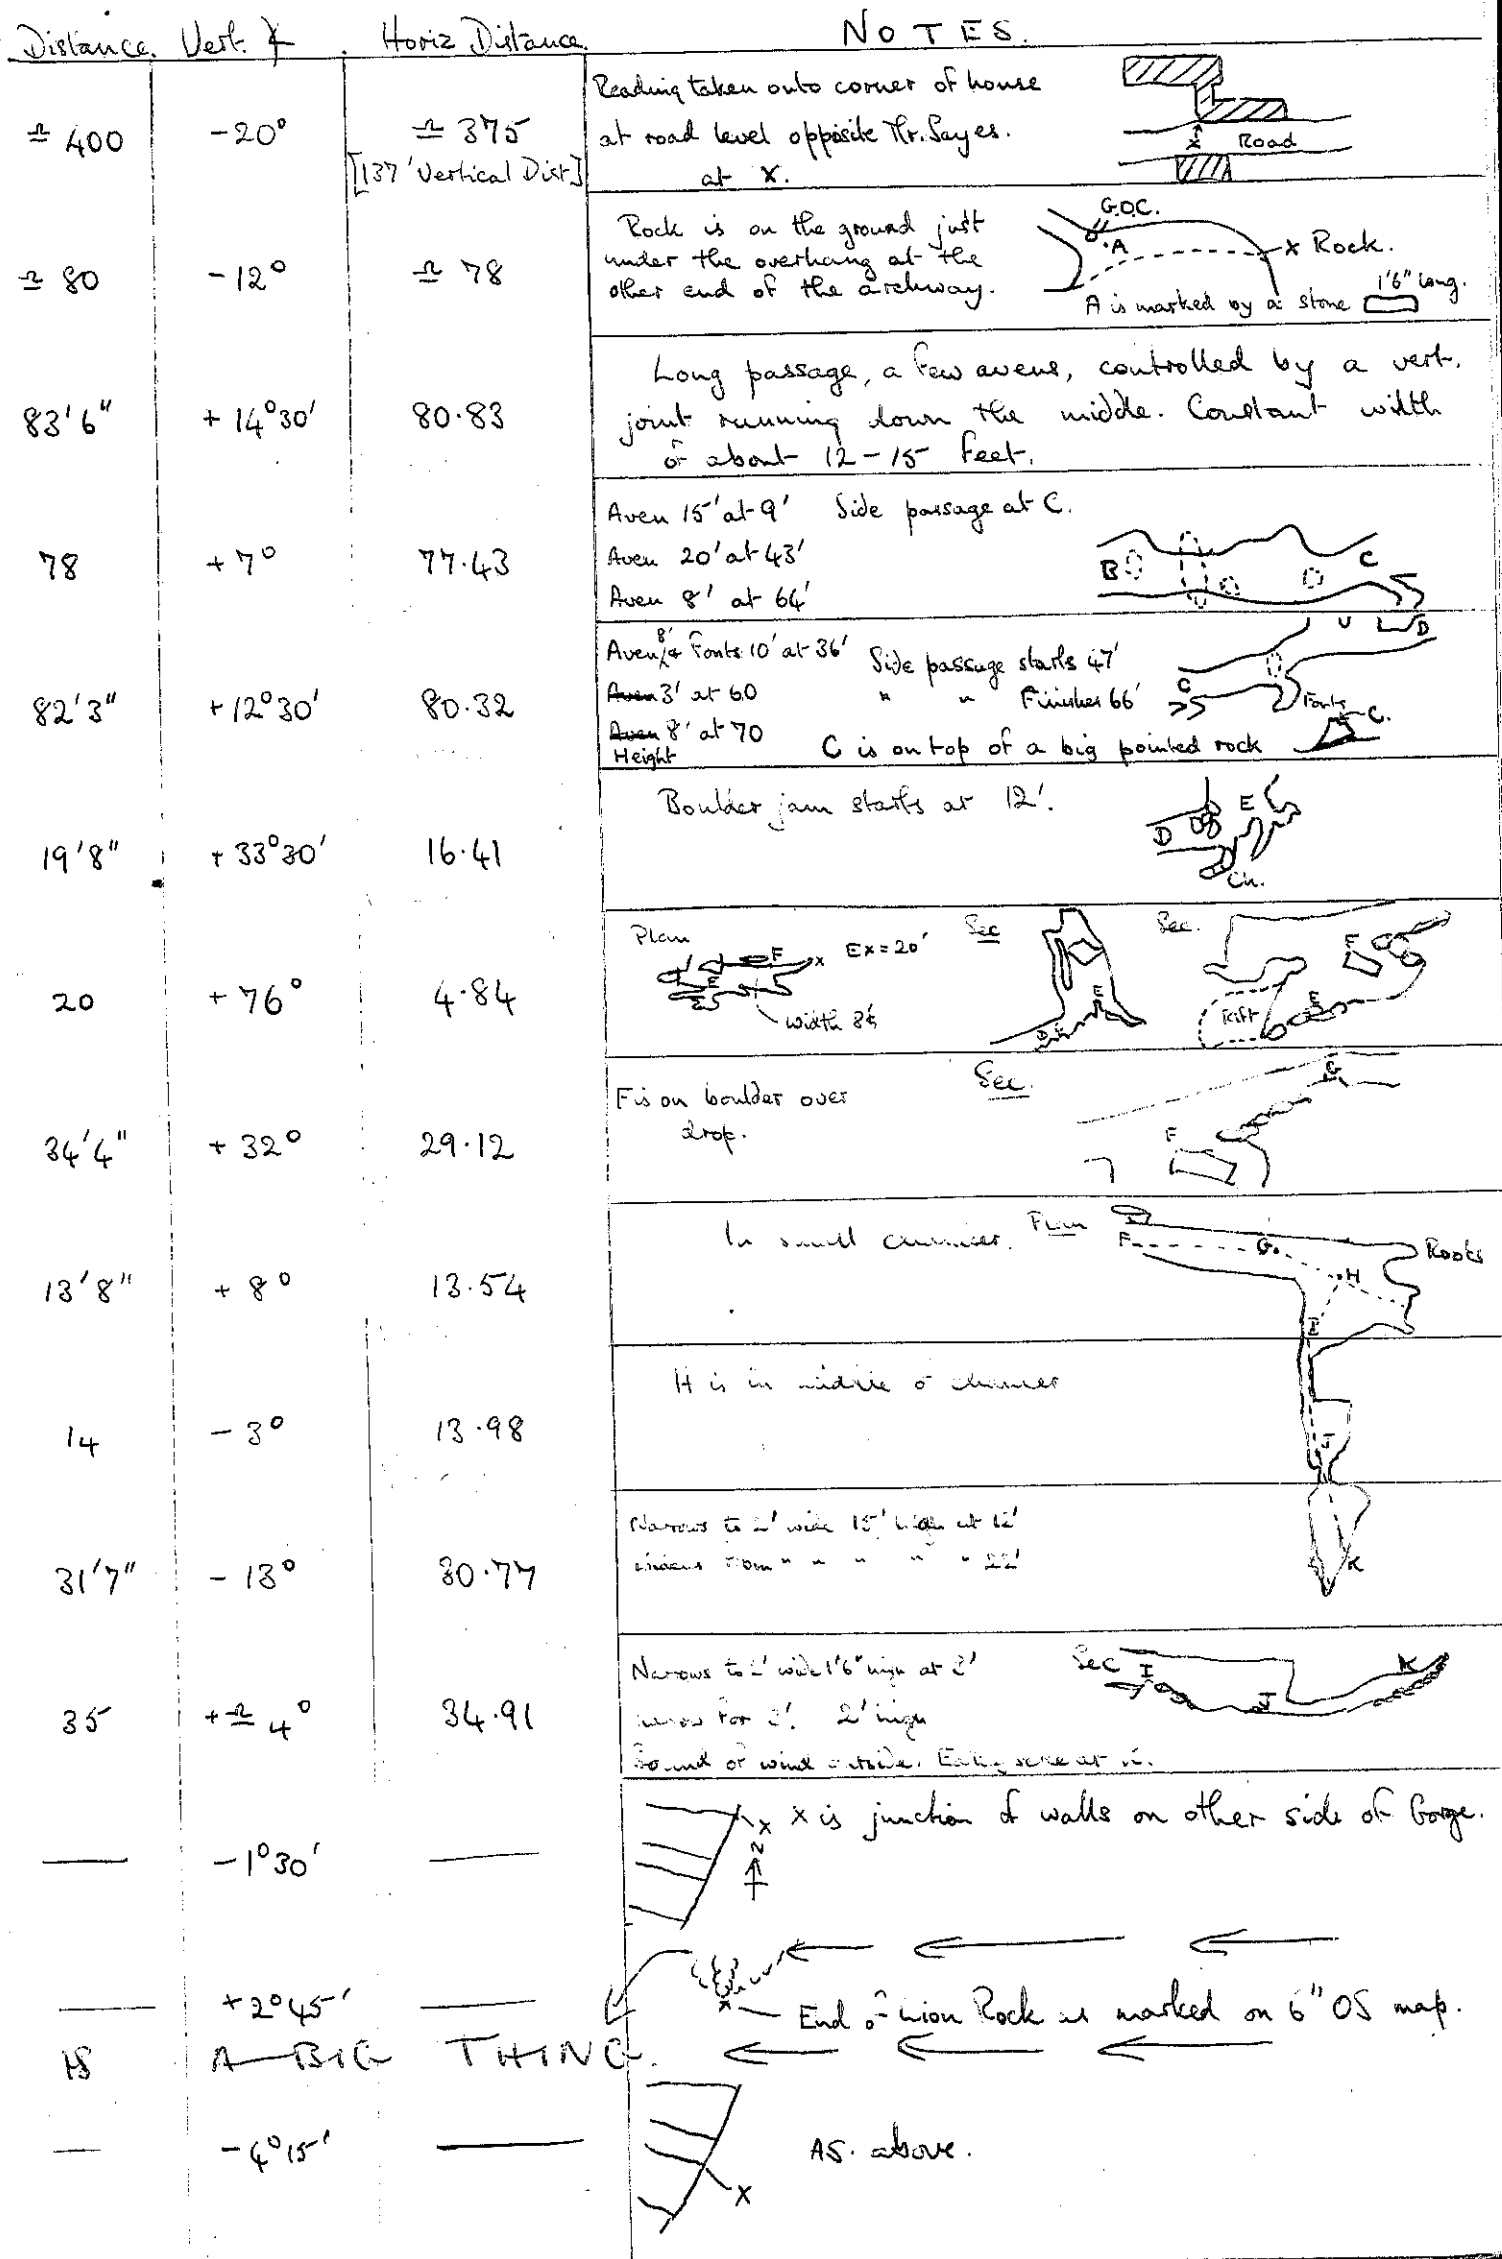 Distance. Vert. ∡. Horiz Distance. NOTES.
≏ 400 -20° ≏ 375
[137' Vertical Dist]
Reading taken onto corner of house
at road level opposite Mr. Sayes.
at X.
X Road
≏ 80 -12° ≏ 78
Rock is on the ground just
under the overhang at the
other end of the archway.
G.O.C.
A X Rock.
1'6" long.
A is marked by a stone
83'6" +14°30' 80.83
Long passage, a few avens, controlled by a vert.
joint running down the middle. Constant width
of about 12-15 feet.
78 +7° 77.43
Aven 15' at 9' Side passage at C.
Aven 20' at 43'
Aven 8' at 64'
B C
82'3" +12°30' 80.32
Aven 8' & Fonts 10' at 36' Side passage starts 47'
Aven 3' at 60 " " Finishes 66'
Aven 8' at 70
Height C is on top of a big pointed rock
C D Fonts C.
19'8" +33°30' 16.41
Boulder jam starts at 12'.
D E
Ch.
20 +76° 4.84
Plan F X EX = 20'
E
width 8'
Sec
E
D
Sec.
F
E
Rift
34'4" +32° 29.12
F is on boulder over
drop.
Sec.
G
F
13'8" +8° 13.54
In small chamber. Plan
F G. H Roots
I
14 -3° 13.98
H is in middle of chamber
J
31'7" -13° 30.77
Narrows to 2' wide 15' high at 12'
" " " " " 22'
K
35 +≏ 4° 34.91
Narrows to 2' wide 1'6" high at 3'
for 3'. 2' high
Sound of wind outside.
Sec I J K
— -1°30' —
X is junction of walls on other side of Gorge.
X
N
— +2°45' —
X End of Lion Rock as marked on 6" OS map.
IS A BIG THING.
— -4°15' —
AS. above.
X